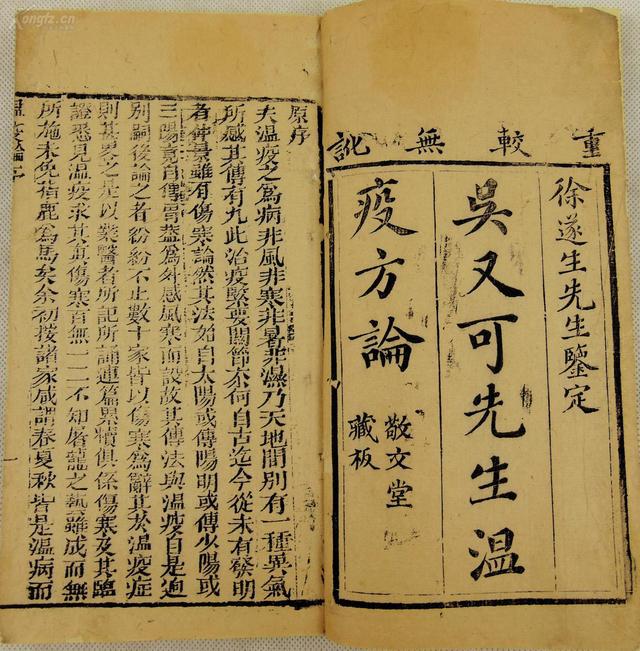 重較無訛
徐遂生先生鑒定
吳又可先生溫
疫方論
敬文堂
藏板
原序
夫溫疫之為病非風非寒非暑非濕乃天地間別有一種異氣
所感其傳有九此治疫緊要關節奈何自古迄今從未有發明
者仲景雖有傷寒論然其法始自太陽或傳陽明或傳少陽或
三陽竟自傳胃蓋為外感風寒而設故其傳法與溫疫自是迥
別嗣後論之者紛紛不止數十家皆以傷寒為辭其於溫疫症
則甚畧之是以業醫者所記所誦連篇累牘俱係傷寒及其臨
證悉見溫疫求其真傷寒百無一二不知屠龍之藝雖成而無
所施未免指鹿為馬矣余初按諸家咸謂春夏秋皆是溫病而
一
ongfz.cn